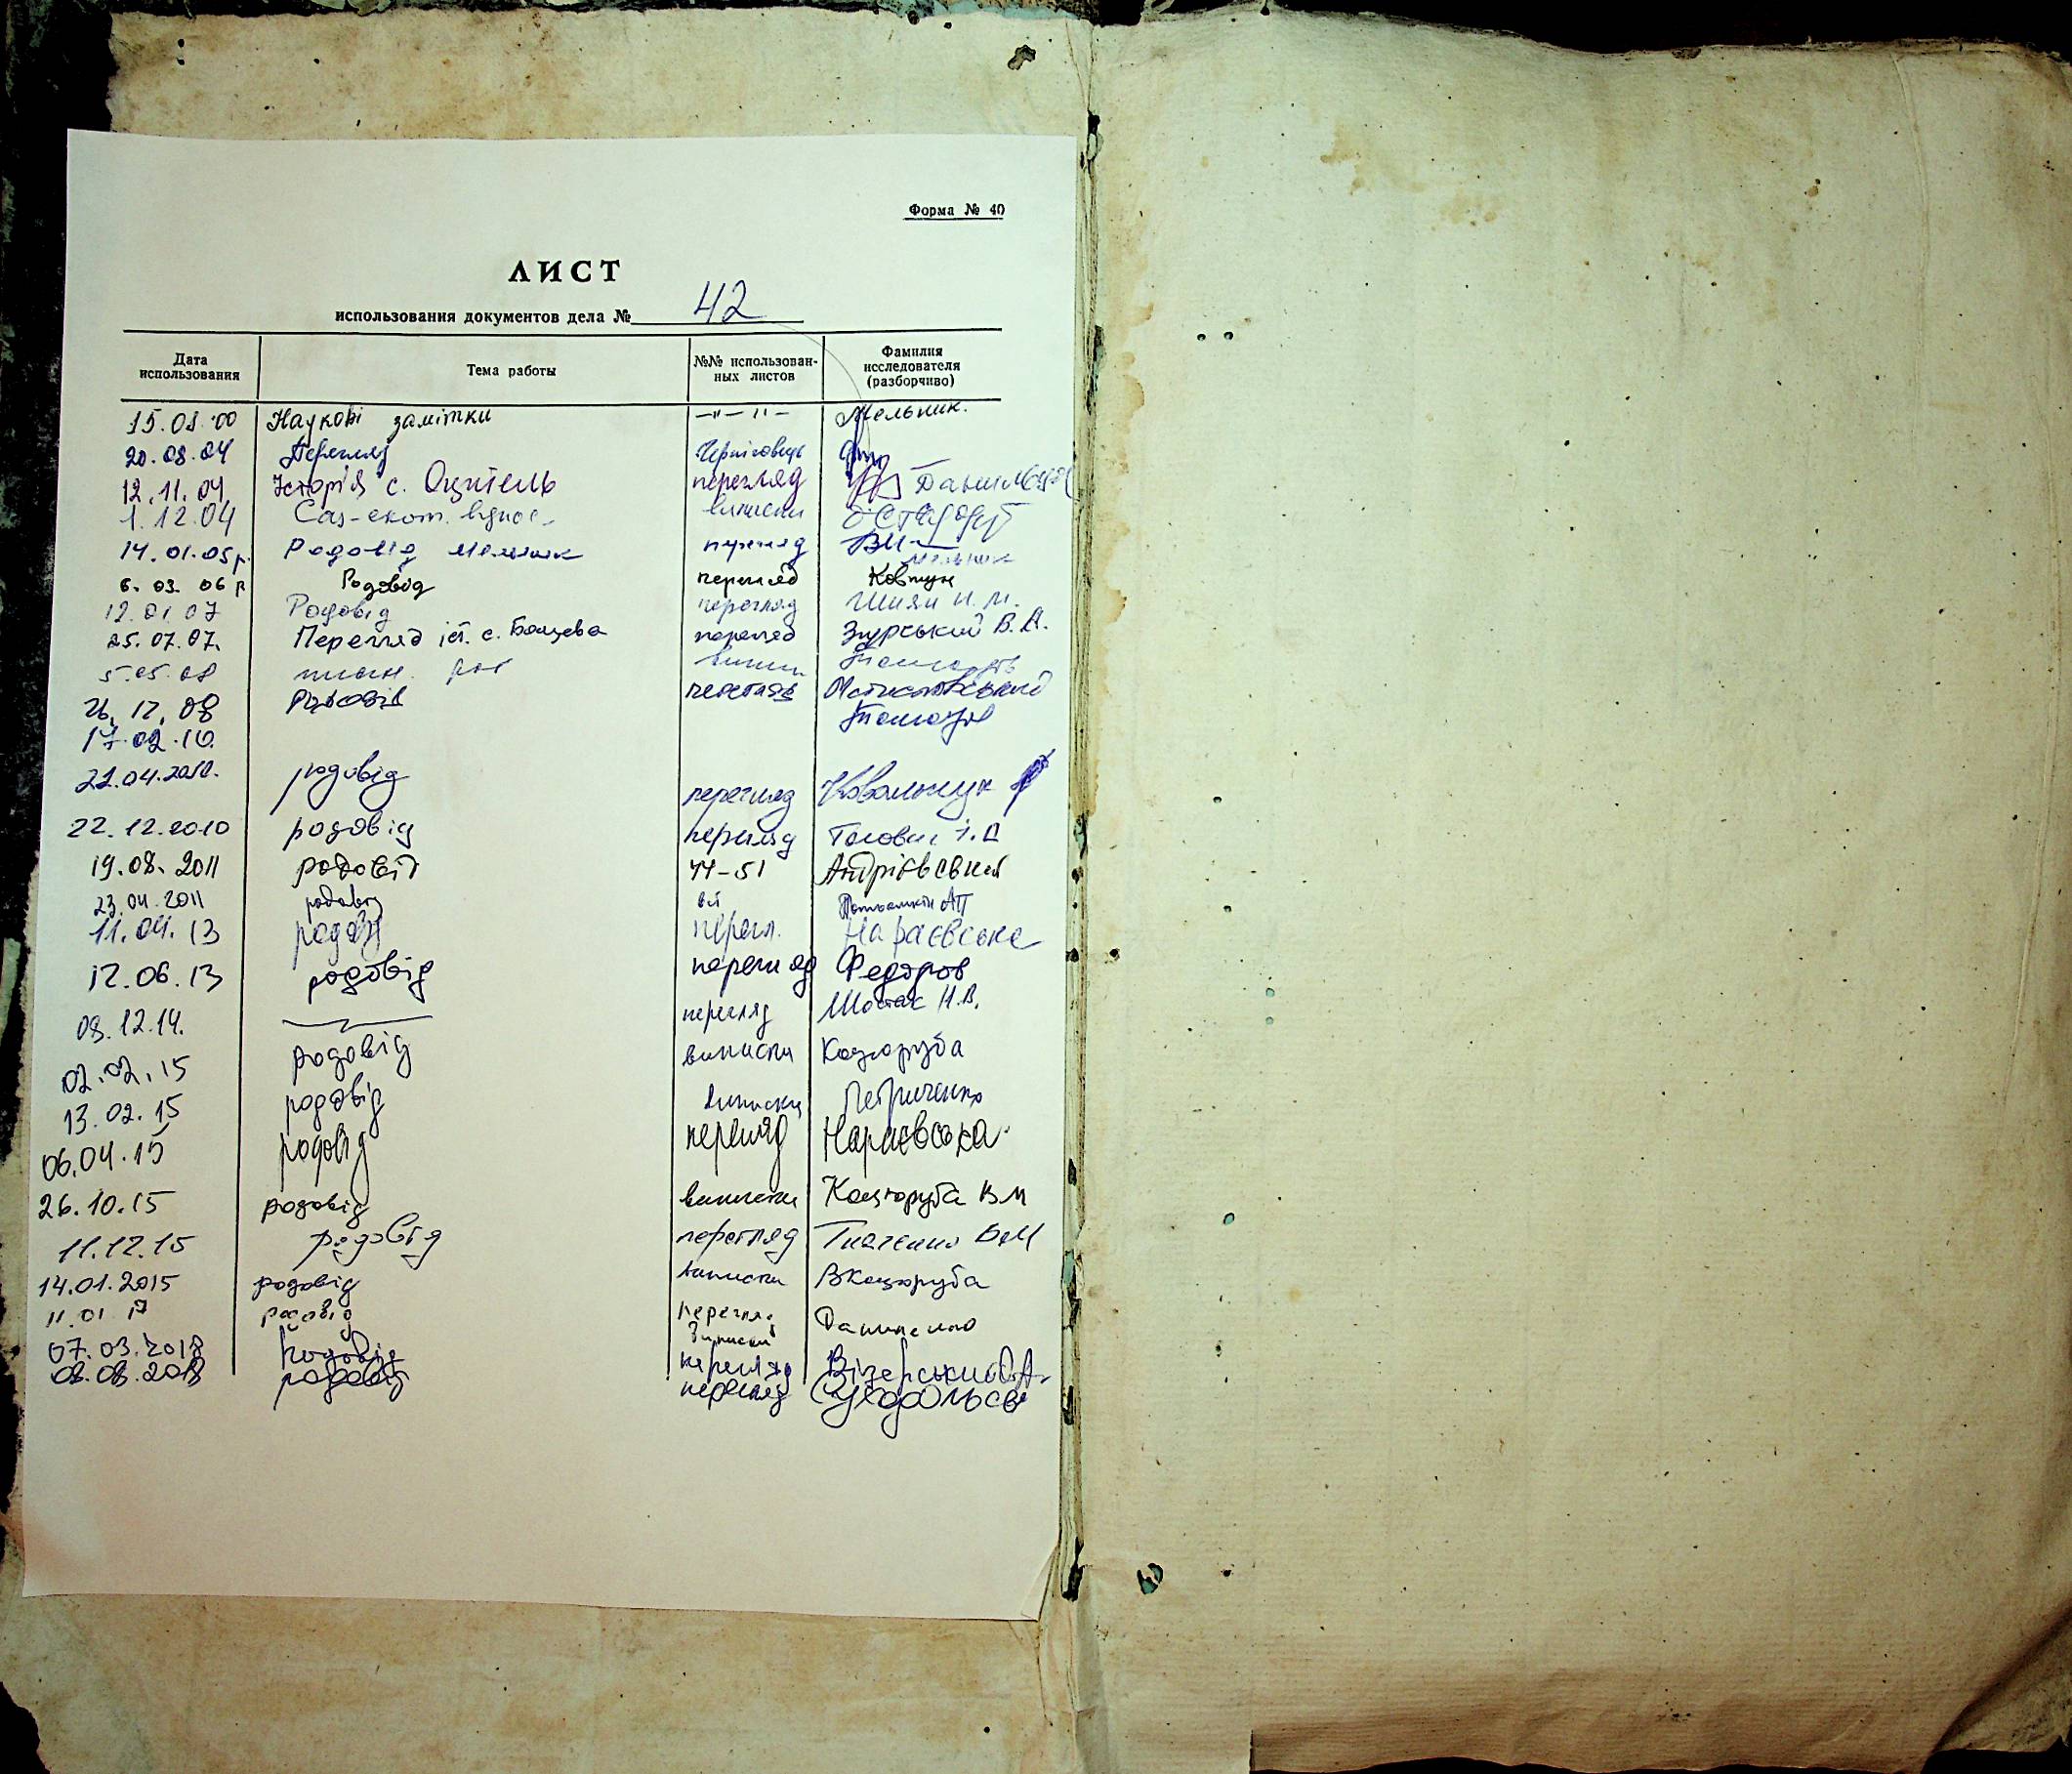 Форма № 40
ЛИСТ
использования документов дела № 42
Дата использования Тема работы №№ использован-ных листов Фамилия исследователя (разборчиво)
15.08.00 Наукові замітки —〃— 〃 — Мельник.
20.08.04 Перегляд
12.11.04 Історія с. перегляд
1.12.04 виписки
14.01.05р. Родовід Мельник перегляд Мельник
6.03.06 р Родовід перегляд Ковтун
12.01.07 Родовід перегляд Шиян Н.М.
25.07.07. Перегляд іст. с. перегляд В.А.
5.05.08
26.12.08 Родовід перегляд
17.02.10.
21.04.2010. родовід перегляд Ковальчук
22.12.2010 родовід перегляд
19.08.2011 родовід 44-51 Андрієвський
23.04.2011 родовід всі АП
11.04.13 родовід перегл. Нараєвська
12.06.13 родовід перегляд Федоров
08.12.14. перегляд Шостак Н.В.
02.02.15 родовід виписки Коцюруба
13.02.15 родовід виписки Петриченко
06.04.15 родовід перегляд Нараєвська
26.10.15 родовід виписки Коцюруба ВМ
11.12.15 родовід перегляд
14.01.2015 родовід виписки В Коцюруба
11.01.17 родовід перегляд виписки
07.03.2018 родовід перегляд Візерський
08.08.2018 родовід перегляд